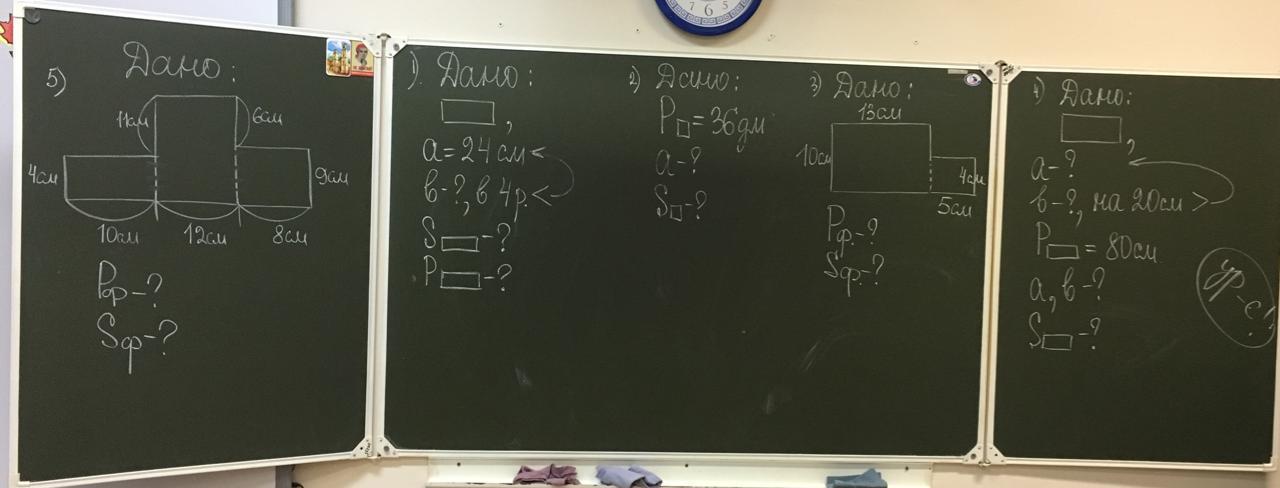 5) Дано:
11см
6см
4см
9см
10см 12см 8см
Pф-?
Sф-?
1) Дано:
,
a=24см<
в-?, в 4р.<
S -?
P -?
2) Дано:
P =36дм
a-?
S -?
3) Дано:
13см
10см
4см
5см
Pф.-?
Sф.-?
4) Дано:
,
a-?
в-?, на 20см >
P = 80см
a, в-?
S -?
ур-е!
6